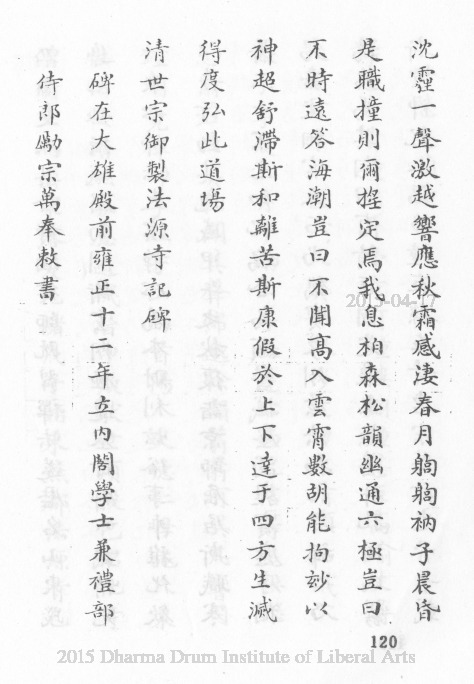 沈霾一聲激越響應秋霜感淒春月躹躹衲子晨昏
是職撞則爾摐定焉我息柏森松韻幽通六極豈曰
不時遠答海潮豈曰不聞高入雲霄數胡能拘玅以
神超舒滯斯和離苦斯康假於上下達于四方生滅
得度弘此道場
清世宗御製法源寺記碑
碑在大雄殿前雍正十二年立內閣學士兼禮部
侍郎勵宗萬奉敕書
120
2019-04-17
2015 Dharma Drum Institute of Liberal Arts